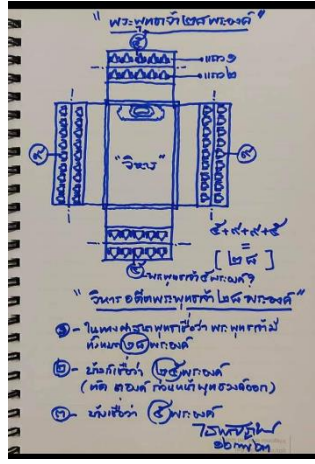 " พระพุทธเจ้า ๒๘ พระองค์ "
๕
แถว ๑
แถว ๒
๙
" วิหาร "
๙
๕+๙+๙+๕
=
[ ๒๘ ]
๕
พระพุทธเจ้า ๕ พระองค์ ?
" วิหารอดีตพระพุทธเจ้า ๒๘ พระองค์ "
๑ - ในทางศาสนาพุทธเชื่อว่า พระพุทธเจ้ามี
ทั้งหมด ๒๘ พระองค์
๒ - บ้างก็เชื่อว่า ๒๕ พระองค์
(ตัด ๓ องค์ ก่อนหน้าพุทธวงศ์ออก)
๓ - บ้างเชื่อว่า ๕ พระองค์